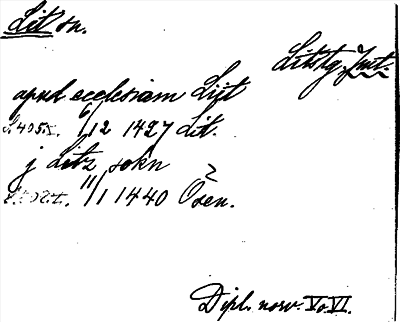 Lit sn.
Litstg, Jmt.
apud ecclesiam Lijt
S. 405. X. 6/12 1427 Lit.
j Litz sokn
11/1 1440 Ösen.
Dipl. norv. V o. VI.